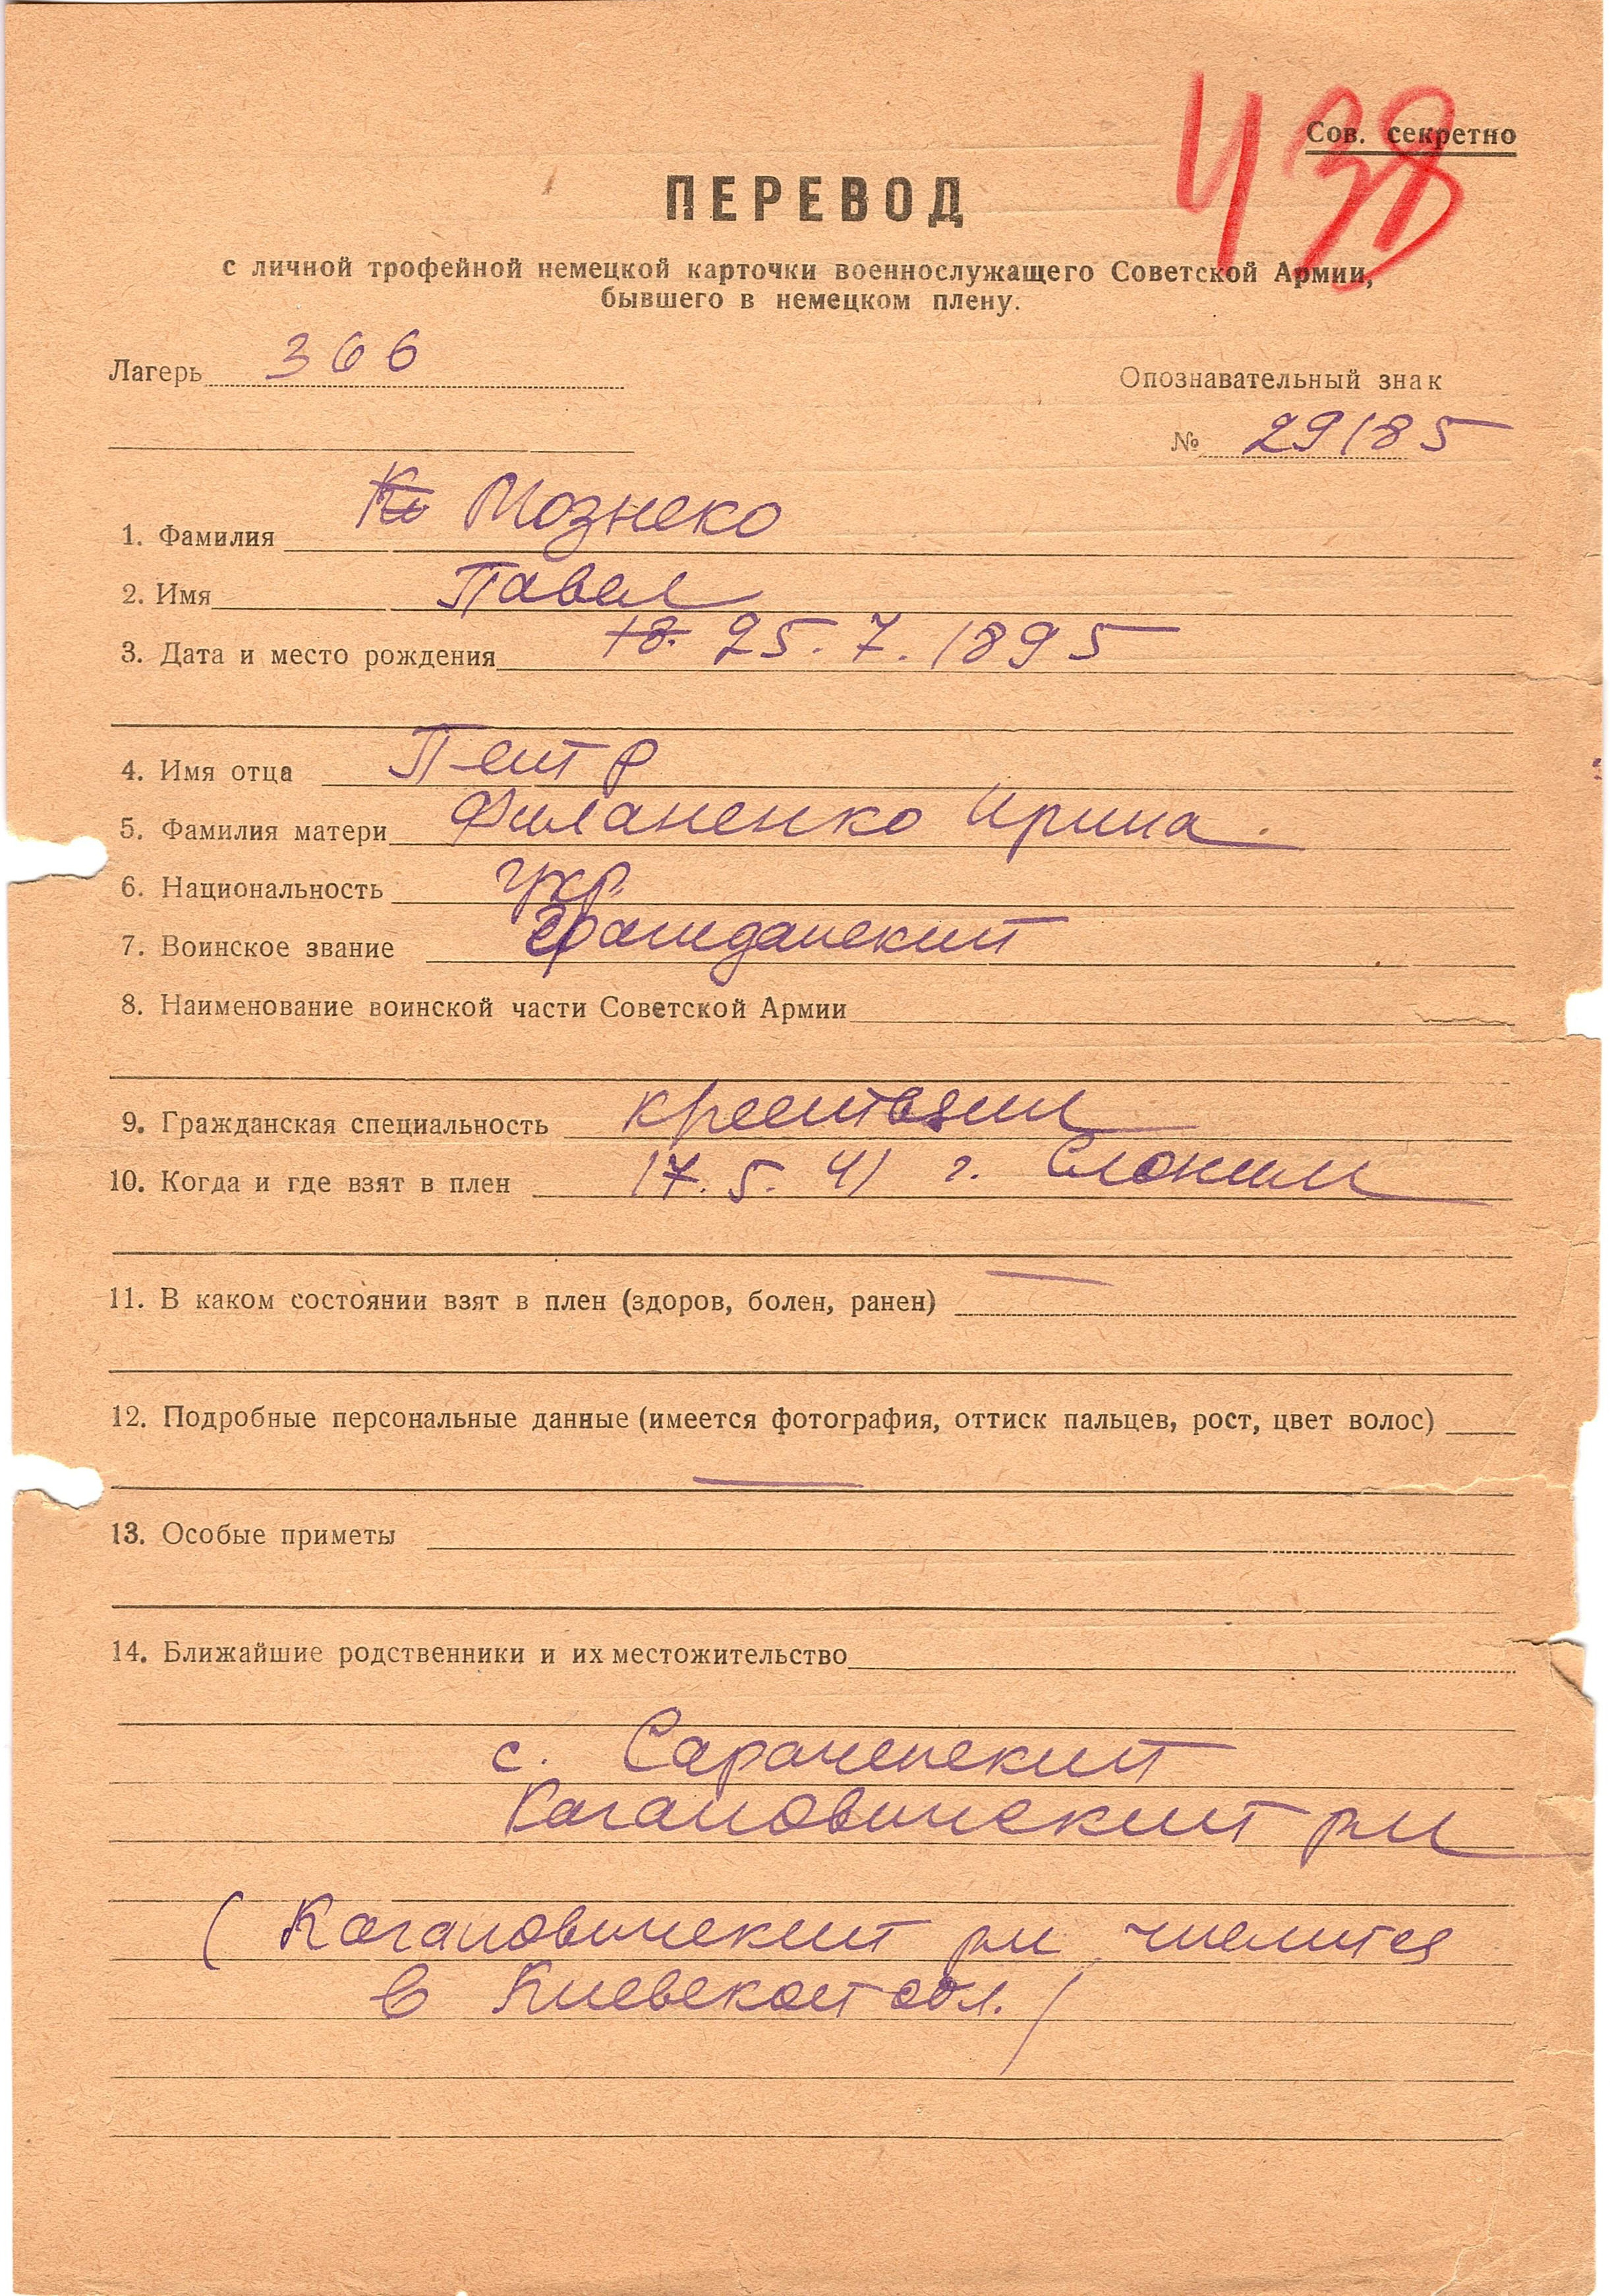 438
Сов. секретно
ПЕРЕВОД
с личной трофейной немецкой карточки военнослужащего Советской Армии,
бывшего в немецком плену.
Лагерь 366
Опознавательный знак
№ 29185
1. Фамилия Ко Мознеко
2. Имя Павел
3. Дата и место рождения 18. 25. 7. 1895
4. Имя отца Петр
5. Фамилия матери Филаненко Ирина
6. Национальность укр.
7. Воинское звание Гражданский
8. Наименование воинской части Советской Армии
9. Гражданская специальность крестьянин
10. Когда и где взят в плен 17. 5. 41 г. Слоним
11. В каком состоянии взят в плен (здоров, болен, ранен) —
12. Подробные персональные данные (имеется фотография, оттиск пальцев, рост, цвет волос)
—
13. Особые приметы
14. Ближайшие родственники и их местожительство
с.
Кагановический рн
(Кагановический рн числится
в Киевской обл.)